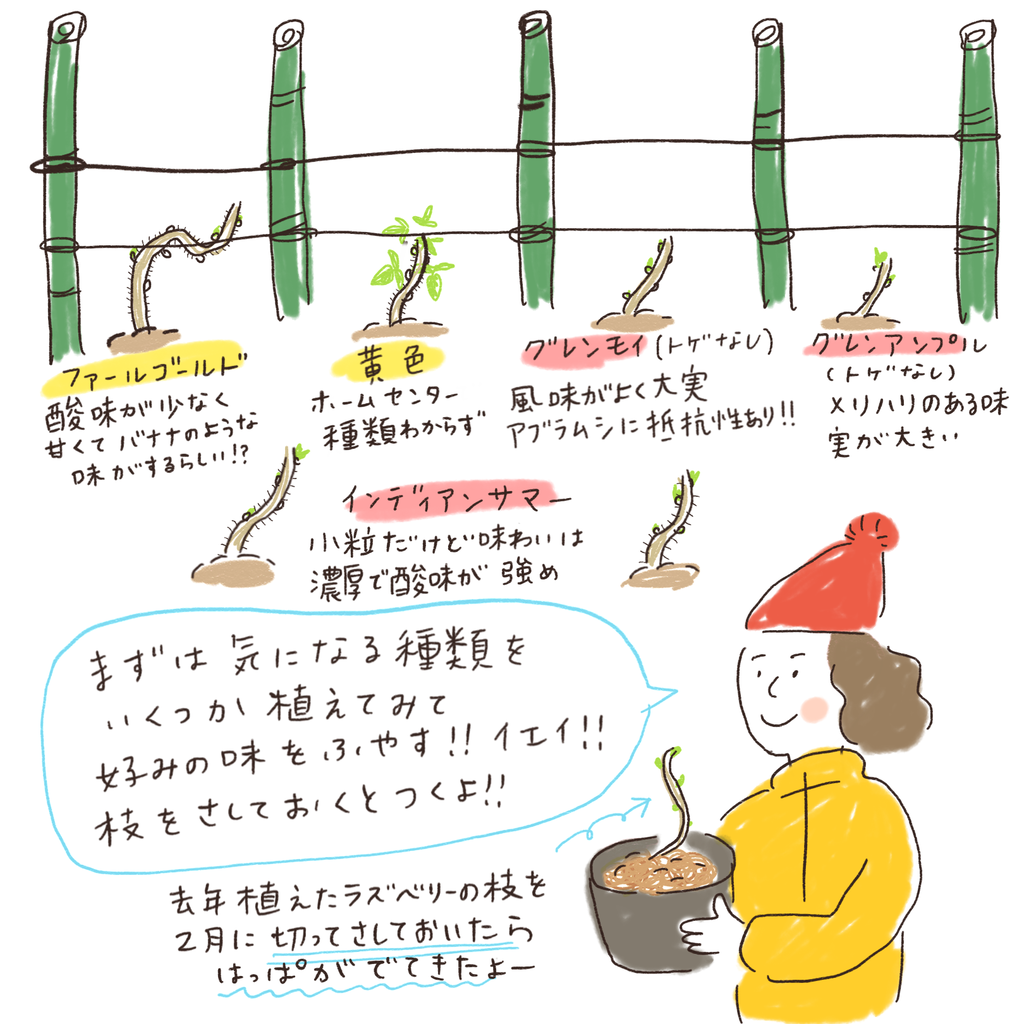 ファールゴールド
酸味が少なく
甘くてバナナのような
味がするらしい!?
黄色
ホームセンター
種類わからず
グレンモイ(トゲなし)
風味がよく大実
アブラムシに抵抗性あり!!
グレンアンプル
(トゲなし)
メリハリのある味
実が大きい
インディアンサマー
小粒だけど味わいは
濃厚で酸味が強め
まずは気になる種類を
いくつか植えてみて
好みの味をふやす!!イエイ!!
枝をさしておくとつくよ!!
去年植えたラズベリーの枝を
2月に切ってさしておいたら
はっぱがでてきたよー